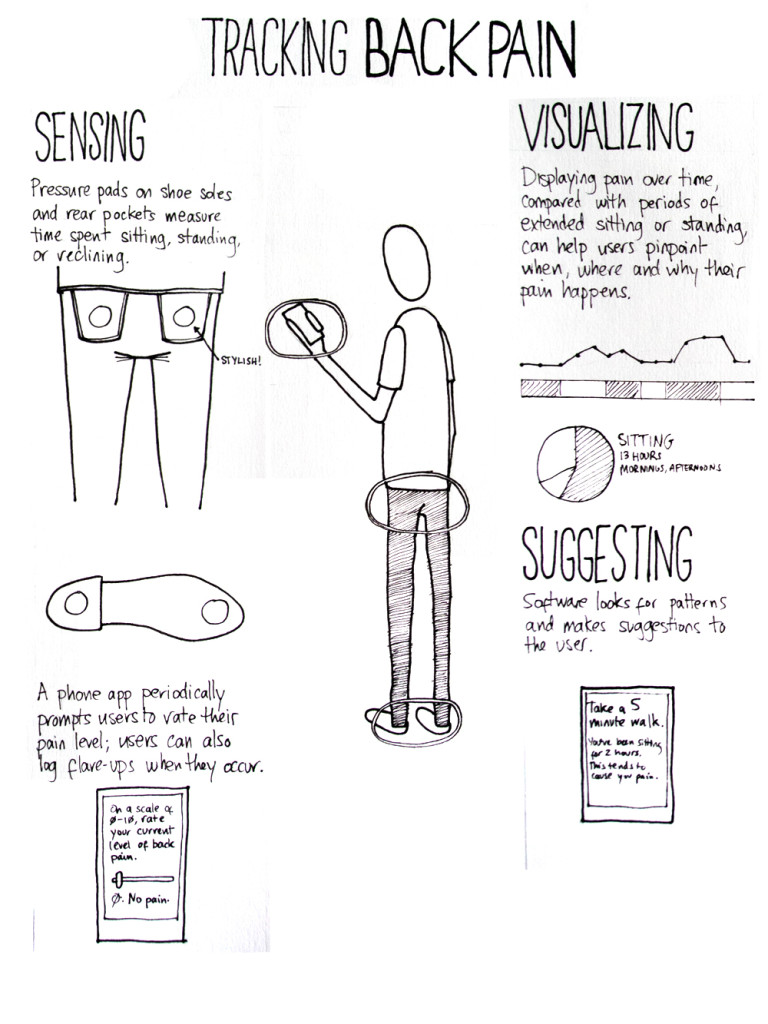 TRACKING BACK PAIN
SENSING
Pressure pads on shoe soles
and rear pockets measure
time spent sitting, standing,
or reclining.
STYLISH!
A phone app periodically
prompts users to rate their
pain level; users can also
log flare-ups when they occur.
On a scale of
Ø-1Ø, rate
your current
level of back
pain.
Ø. No pain.
VISUALIZING
Displaying pain over time,
compared with periods of
extended sitting or standing,
can help users pinpoint
when, where and why their
pain happens.
SITTING
13 HOURS
MORNINGS, AFTERNOONS
SUGGESTING
Software looks for patterns
and makes suggestions to
the user.
Take a 5
minute walk.
You've been sitting
for 2 hours.
This tends to
cause your pain.